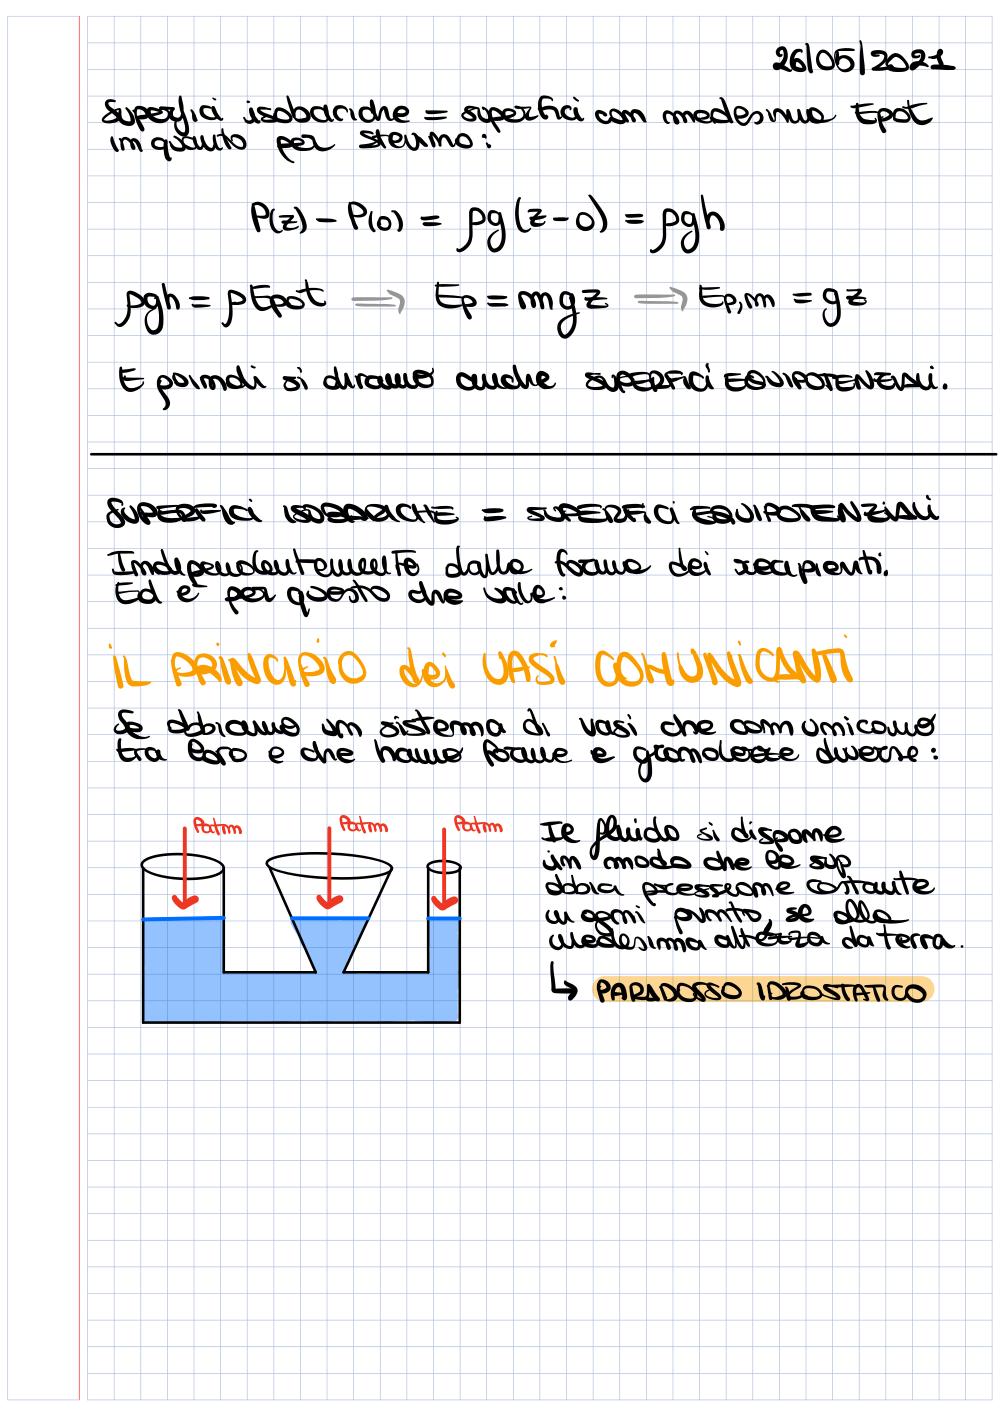 26/05/2021
Superfici isobariche = superfici con medesima Epot
in quanto per stevino:
P(z) - P(0) = ρg(z-0) = ρgh
ρgh = ρEpot ⟹ Ep = mgz ⟹ Ep,m = gz
E poi si diranno anche SUPERFICI EQUIPOTENZIALI.
SUPERFICI ISOBARICHE = SUPERFICI EQUIPOTENZIALI
Indipendentemente dalla forma dei recipienti.
Ed e' per questo che vale:
IL PRINCIPIO dei VASI COMUNICANTI
Se abbiamo un sistema di vasi che comunicano
tra loro e che hanno forme e grandezze diverse:
Patm Patm Patm
Il fluido si dispone
in modo che la sup
abbia pressione costante
in ogni punto, se alla
medesima altezza da terra.
↳ PARADOSSO IDROSTATICO